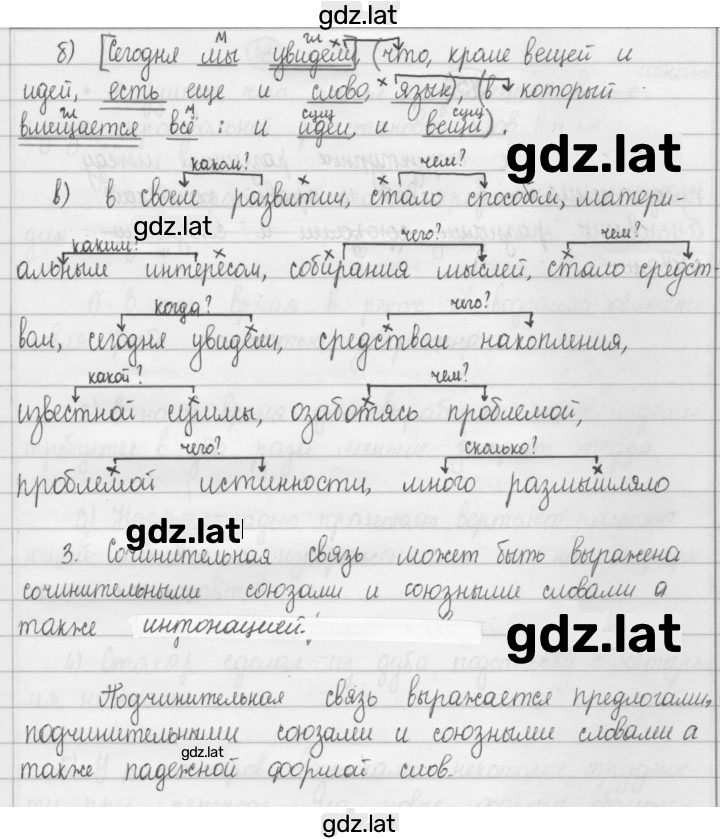 gdz.lat
м гл
б) [Сегодня мы увидели, (что, кроме вещей и
идей, есть еще и слово, язык), (в который
гл м сущ сущ
вмещается всё: и идеи, и вещи).
gdz.lat
каком? чем?
в) в своем развитии, стало способом, матери-
gdz.lat
каким? чего? чем?
альным интересом, собирания мыслей, стало средст-
когда? чего?
вом, сегодня увидели, средством накопления,
какой? чем?
известной суммы, озаботясь проблемой,
чего? сколько?
проблемой истинности, много размышляло
gdz.lat
3. Сочинительная связь может быть выражена
сочинительными союзами и союзными словами а
также интонацией.
gdz.lat
Подчинительная связь выражается предлогами,
подчинительными союзами и союзными словами а
gdz.lat
также падежной формой слов.
gdz.lat